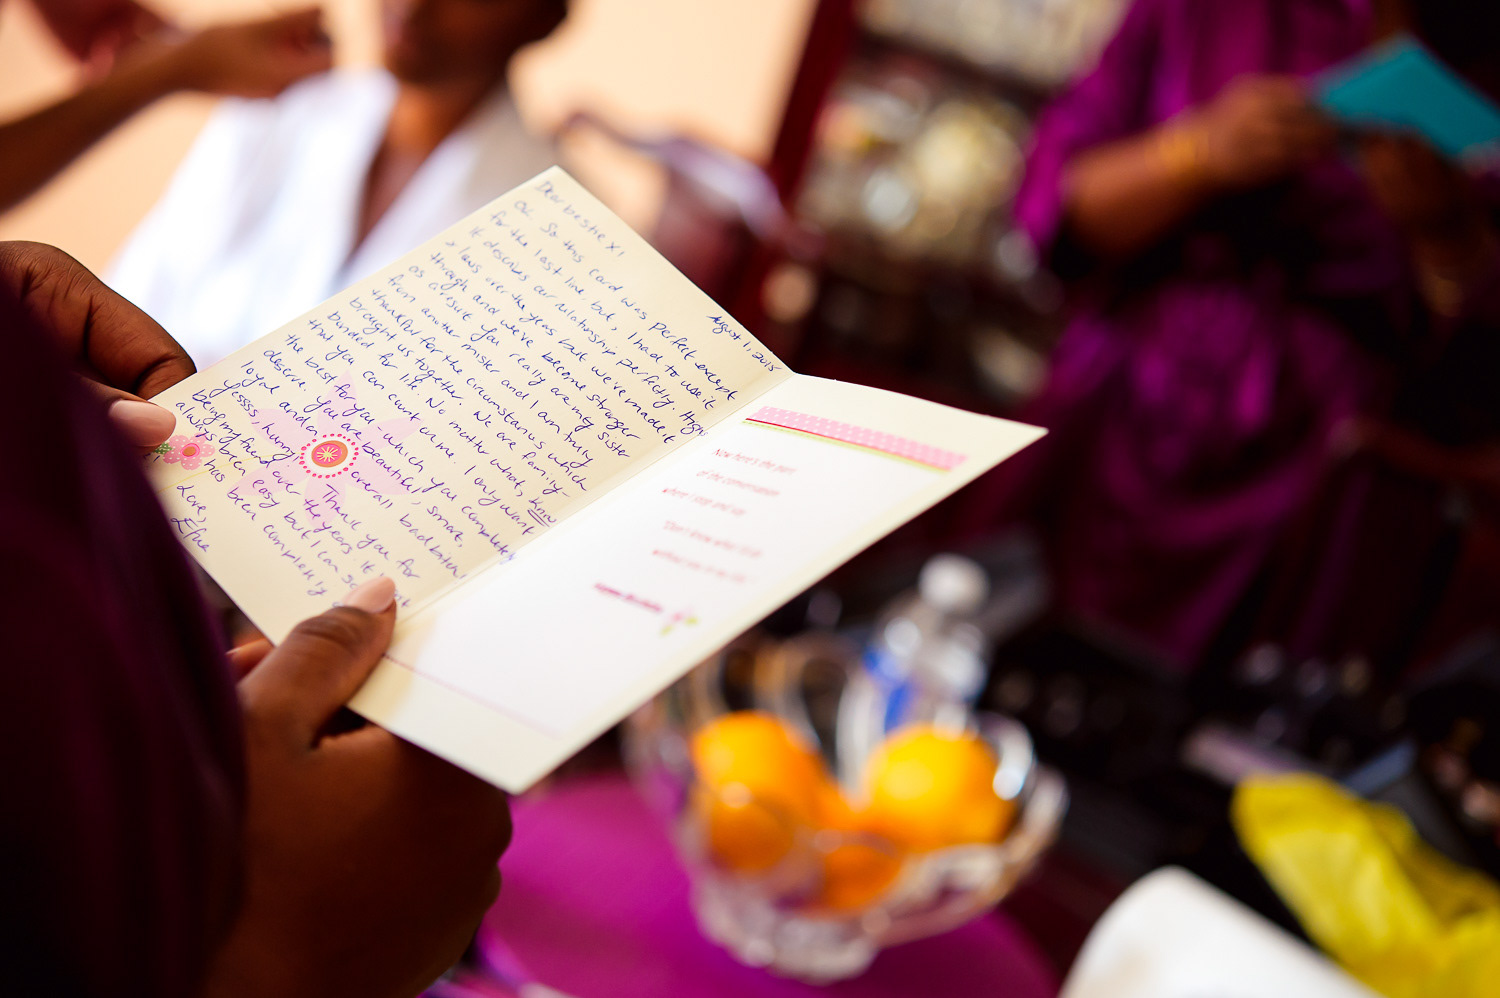 August 1, 2015
Dear bestie x1
Ok. So this card was perfect except
for the last line, but, I had to use it
it describes our relationship perfectly. Highs
& lows over the years but we've made it
through and we've become stronger
as a result. You really are my sister
from another mister and I am truly
thankful for the circumstances which
brought us together. We are family-
bonded for life. No matter what, know
that you can count on me. I only want
the best for you - which you completely
deserve. You are beautiful, smart,
loyal and an overall bad bitch!
Yessss, hunny! Thank you for
being my friend over the years. It
always been easy but I can
has been completely
Love,
Efua
Now here's the part
of the conversation
where I stop and say
"Don't know what I'd do
without you in my life."